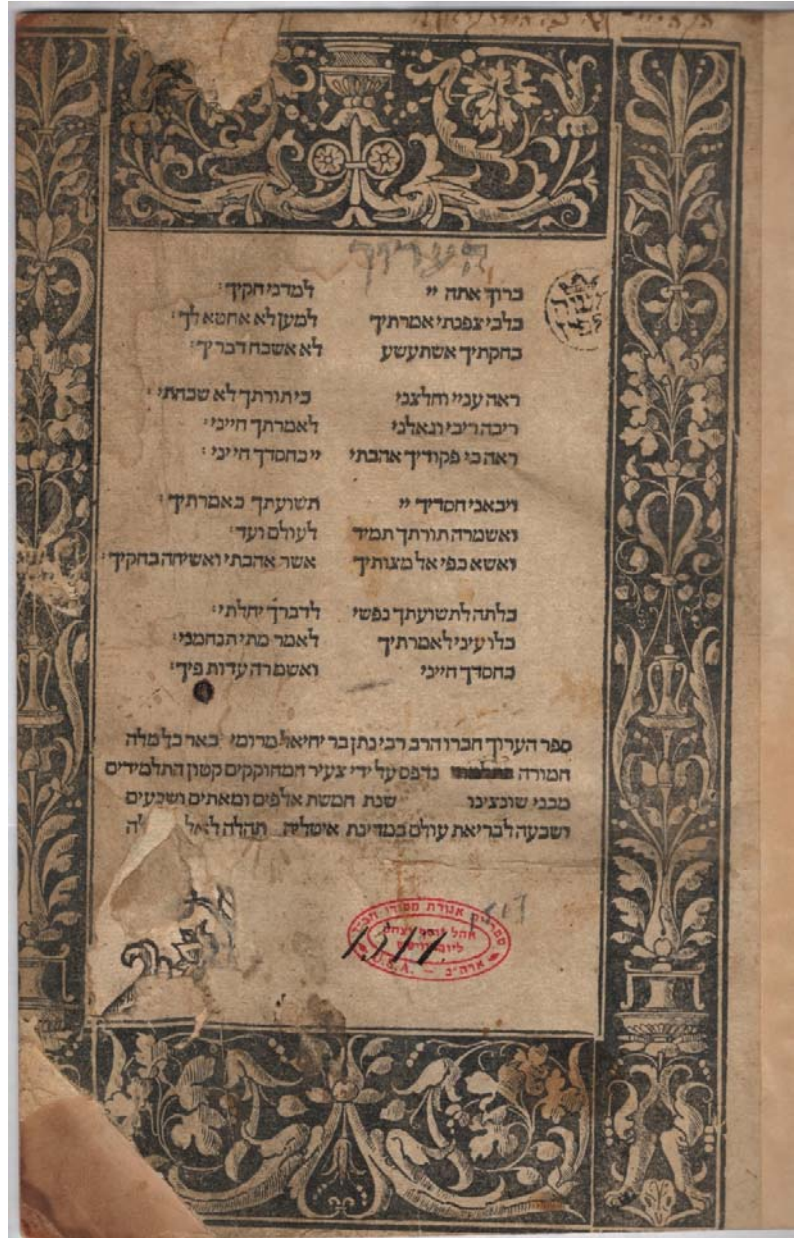 הערוך
ברוך אתה יי למדני חקיך:
בלבי צפנתי אמרתיך למען לא אחטא לך:
בחקתיך אשתעשע לא אשכח דבריך:
ראה עניי וחלצני כי תורתך לא שכחתי:
ריבה ריבי וגאלני לאמרתך חייני:
ראה כי פקודיך אהבתי יי כחסדך חייני:
ויבאני חסדיך יי תשועתך כאמרתיך:
ואשמרה תורתך תמיד לעולם ועד:
ואשא כפי אל מצותיך אשר אהבתי ואשיחה בחקיך:
כלתה לתשועתך נפשי לדברך יחלתי:
כלו עיני לאמרתיך לאמר מתי תנחמני:
כחסדך חייני ואשמרה עדות פיך:
ספר הערוך חברו הרב רבי נתן בר יחיאל מרומי באר כל מלה
חמורה נדפס על ידי צעיר המחוקקים קטון התלמידים
מבני שונצינו שנת חמשת אלפים ומאתים ושבעים
ושבעה לבריאת עולם במדינת איטליה תהלה לאל
ספרית אגודת חסידי חב"ד
אהל יוסף יצחק
ליובאוויטש
U.S.A. — ארה"ב
1511